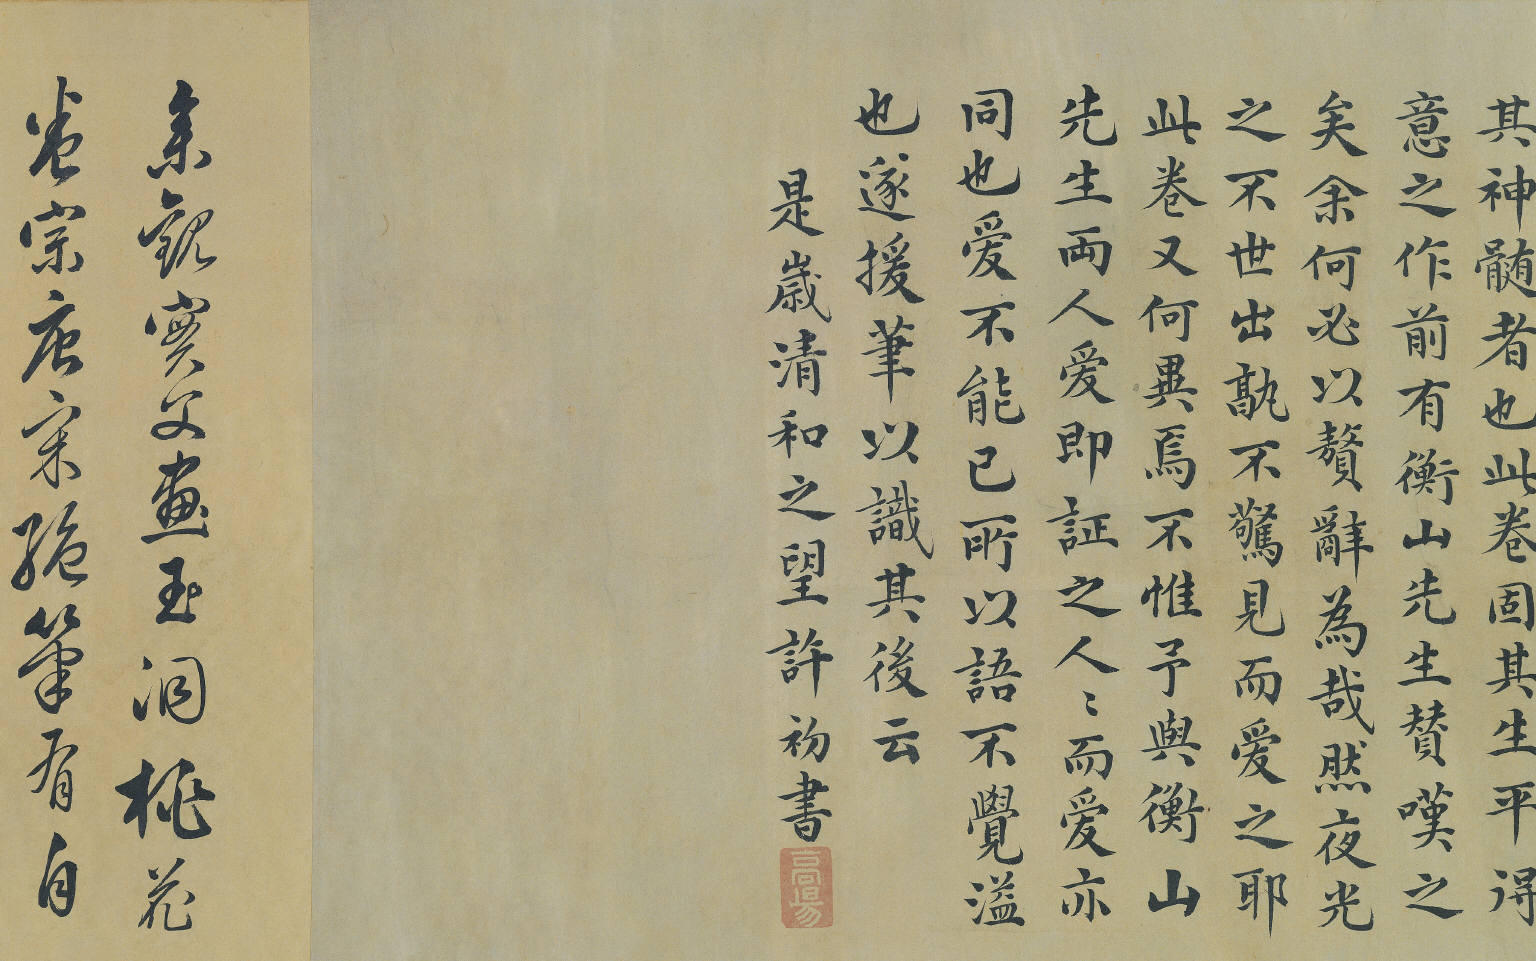 其神髓者也此卷固其生平得
意之作前有衡山先生賛嘆之
矣余何必以贅辭為哉然夜光
之不世出孰不驚見而爱之耶
此卷又何異焉不惟予與衡山
先生両人爱即証之人〻而爱亦
同也爱不能已所以語不覺溢
也遂援筆以識其後云
是歳清和之望許初書
高陽
余観實父畫玉洞桃花
卷宗唐宋絕筆有自